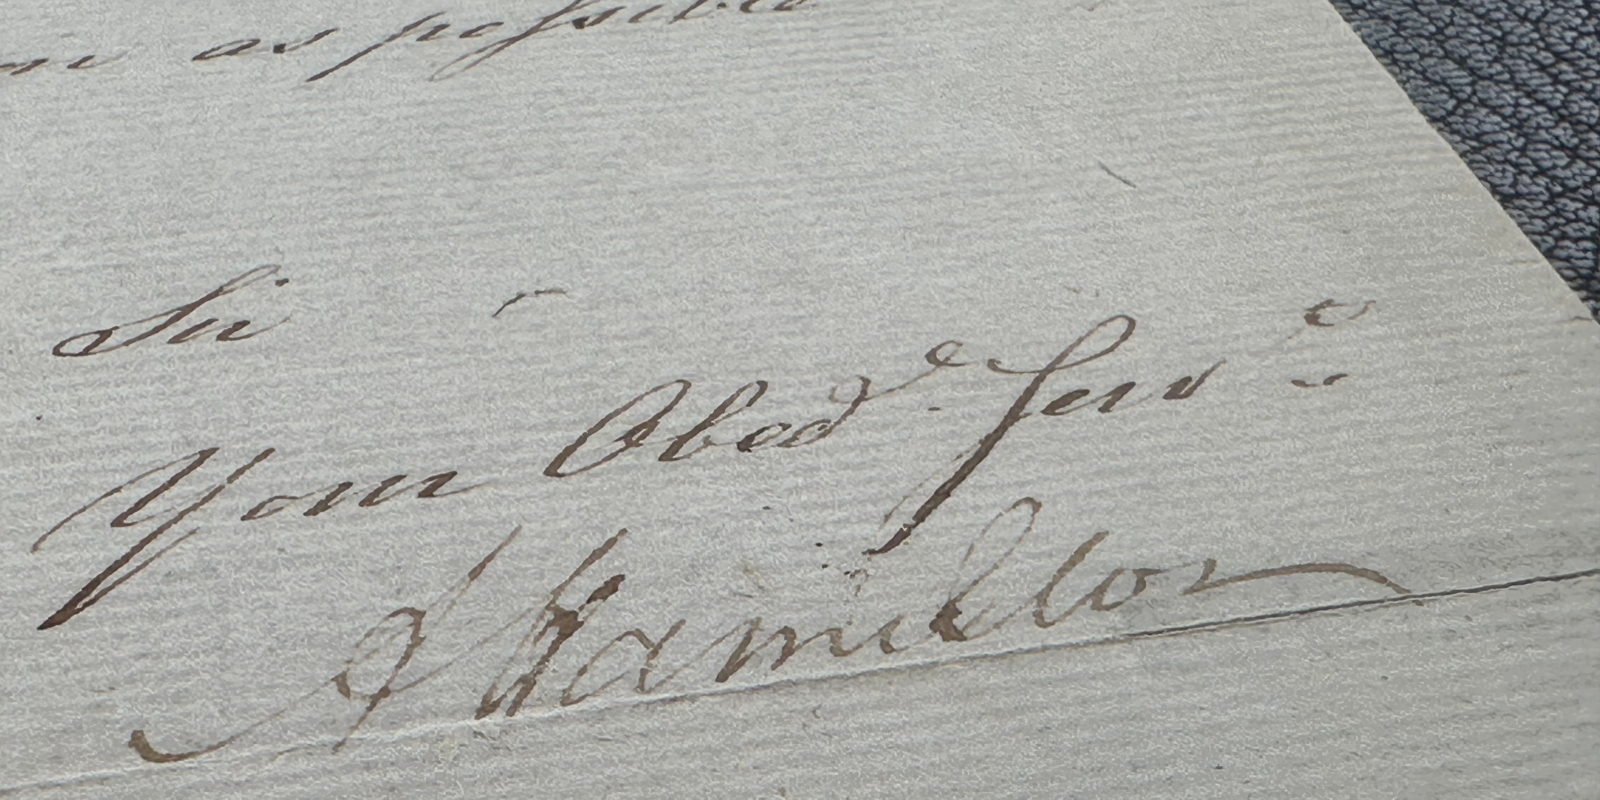 as possible
Sir
Your Obed.e Serv.t
A Hamilton